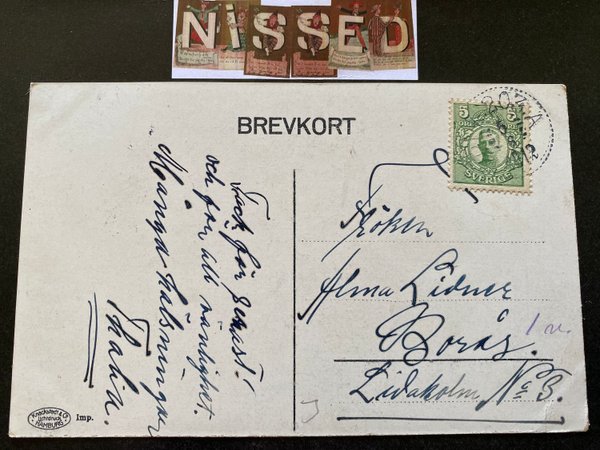 NISSED
BREVKORT
5 5
SVERIGE
Tack för senast!
och för all vänlighet.
Många hälsningar
Thalin.
Fröken
Alma Lidner
Borås.
Lidaholm No 3.
Knackstedt & Co
Lichtdruck
HAMBURG
Imp.